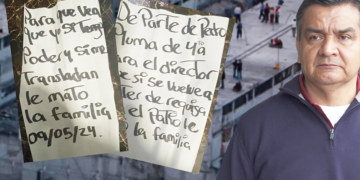 Para que vea
que yo si tengo
Poder y si me
Transladan
le mato
la familia
09/05/24.
De Parte de Pedro
Pluma de 4ª
Para el director
que si se vuelve a
meter de requisa
al Patio le
la familia